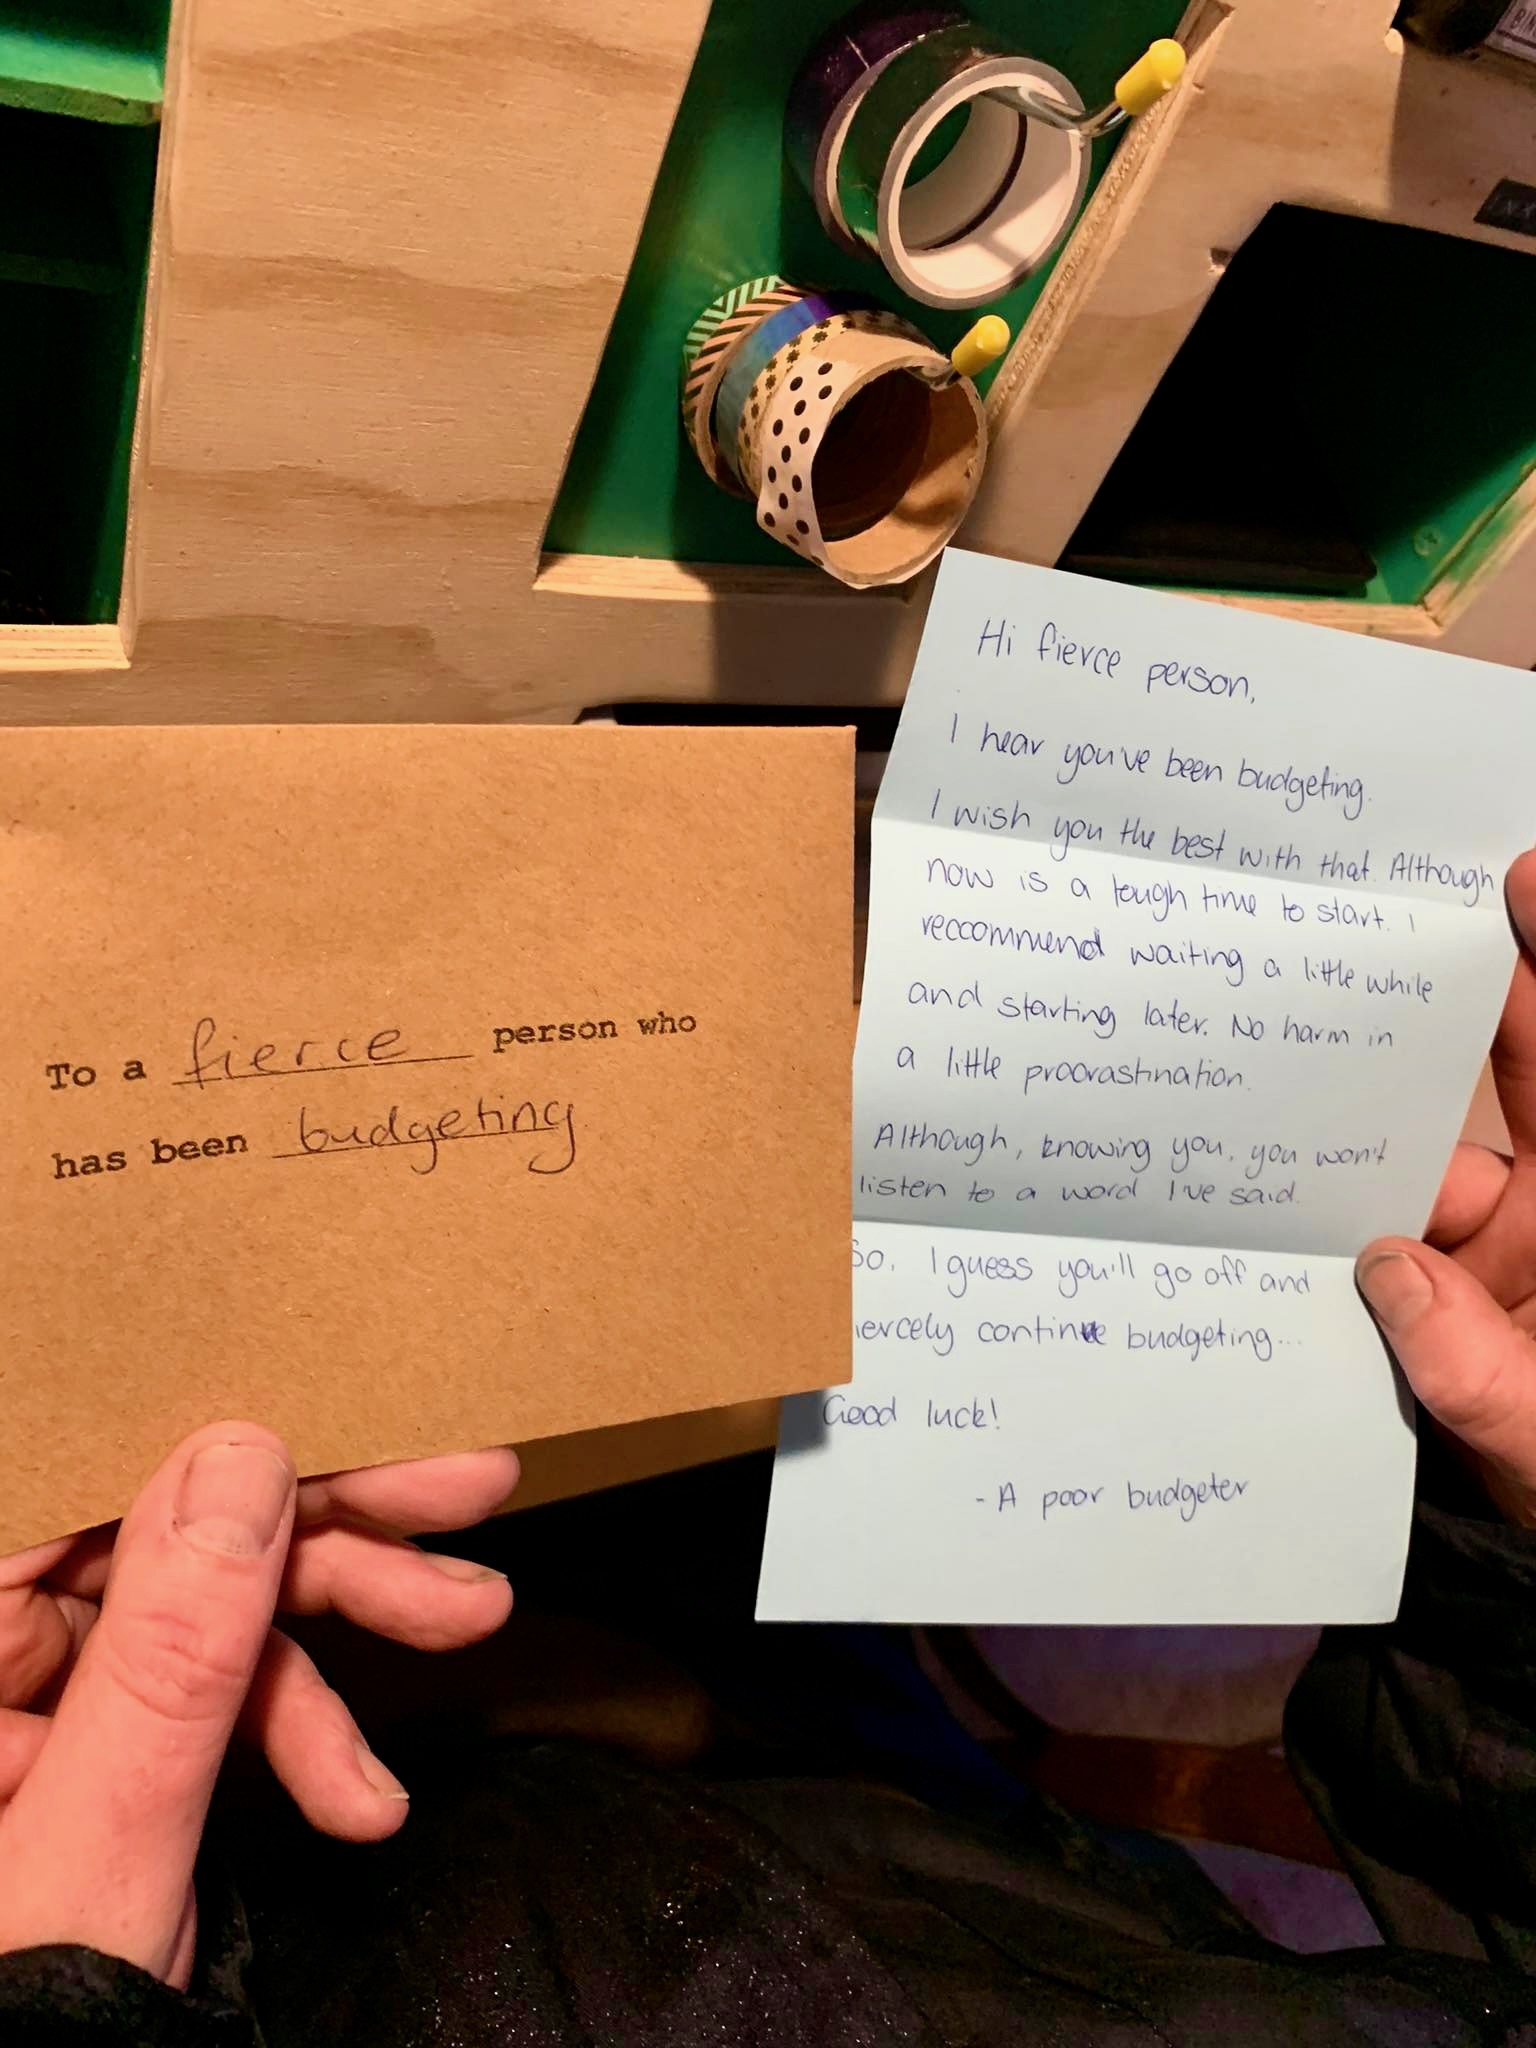 To a fierce person who
has been budgeting
Hi fierce person,
I hear you've been budgeting.
I wish you the best with that. Although
now is a tough time to start. I
reccommend waiting a little while
and starting later. No harm in
a little procrastination.
Although, knowing you, you won't
listen to a word I've said.
So, I guess you'll go off and
iercely continue budgeting...
Good luck!
- A poor budgeter